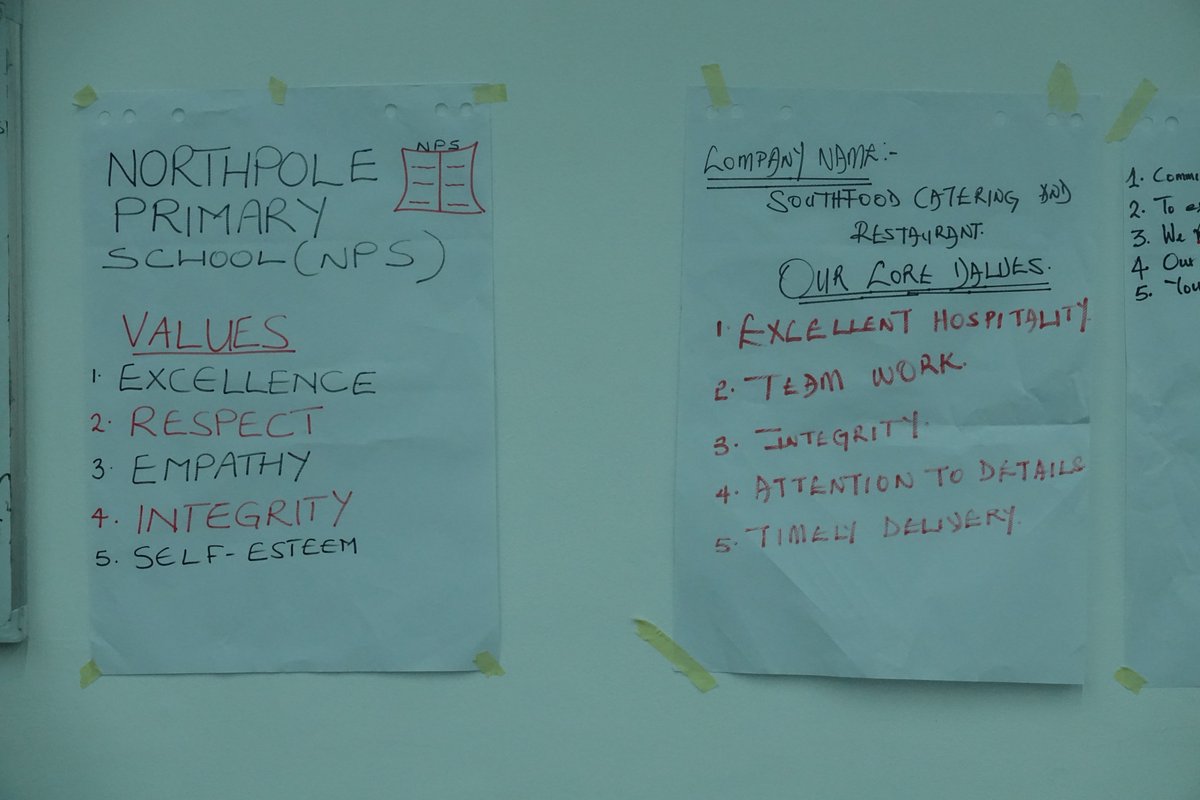 NORTHPOLE
PRIMARY
SCHOOL (NPS)
NPS
VALUES
1. EXCELLENCE
2. RESPECT
3. EMPATHY
4. INTEGRITY
5. SELF-ESTEEM
COMPANY NAME:-
SOUTHFOOD CATERING AND
RESTAURANT.
OUR CORE VALUES.
1. EXCELLENT HOSPITALITY.
2. TEAM WORK.
3. INTEGRITY.
4. ATTENTION TO DETAILS
5. TIMELY DELIVERY.
1.
2. To
3. We
4. Our
5.